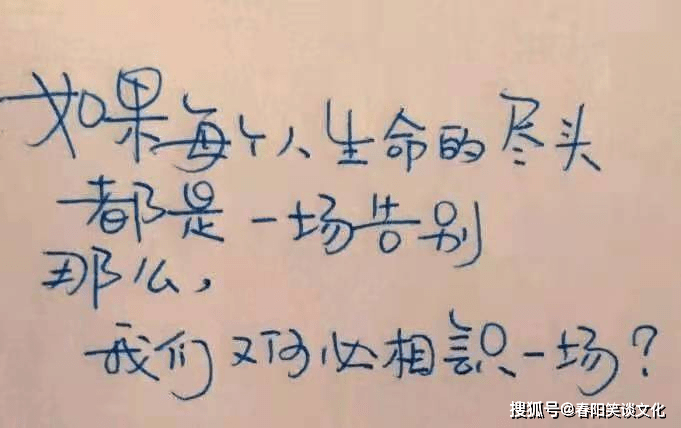 如果每个人生命的尽头
都是一场告别
那么，
我们又何必相识一场？
搜狐号@春阳笑谈文化